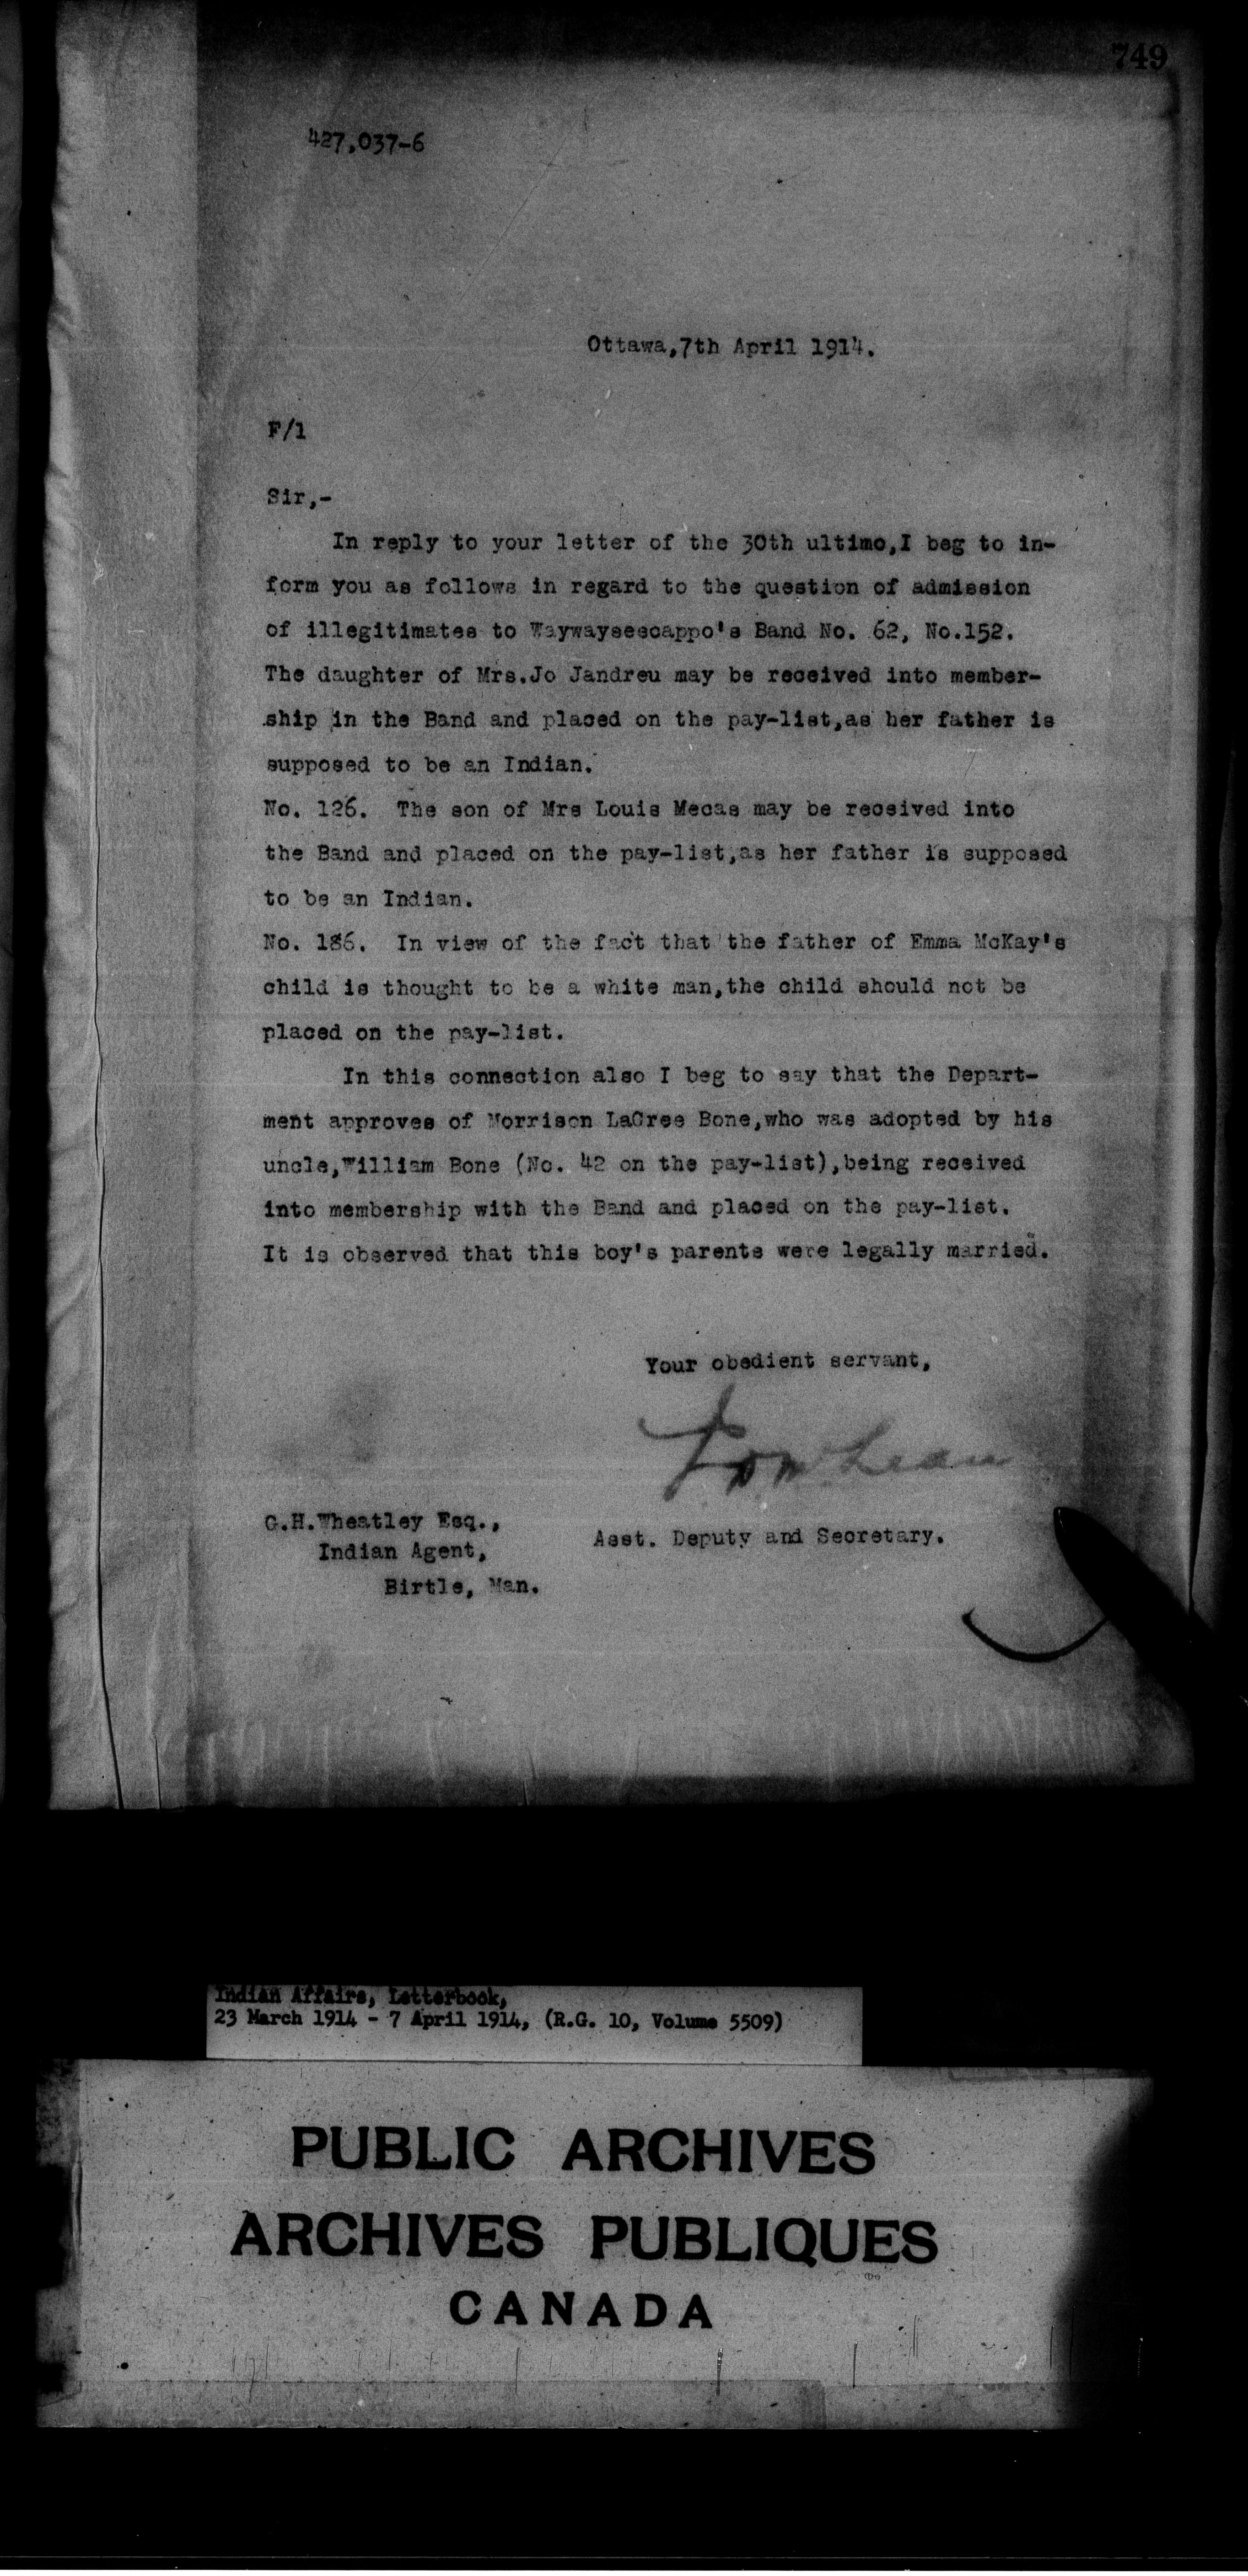 749
427,037-6
Ottawa,7th April 1914.
F/1
Sir,-
In reply to your letter of the 30th ultimo,I beg to in-
form you as follows in regard to the question of admission
of illegitimates to Waywayseecappo's Band No. 62, No.152.
The daughter of Mrs.Jo Jandreu may be received into member-
ship in the Band and placed on the pay-list,as her father is
supposed to be an Indian.
No. 126. The son of Mrs Louis Mecas may be received into
the Band and placed on the pay-list,as her father is supposed
to be an Indian.
No. 186. In view of the fact that the father of Emma McKay's
child is thought to be a white man,the child should not be
placed on the pay-list.
In this connection also I beg to say that the Depart-
ment approves of Morrison LaCree Bone,who was adopted by his
uncle,William Bone (No. 42 on the pay-list),being received
into membership with the Band and placed on the pay-list.
It is observed that this boy's parents were legally married.
Your obedient servant,
G.H.Wheatley Esq.,
Asst. Deputy and Secretary.
Indian Agent,
Birtle, Man.
Indian Affairs, Letterbook,
23 March 1914 - 7 April 1914, (R.G. 10, Volume 5509)
PUBLIC ARCHIVES
ARCHIVES PUBLIQUES
CANADA